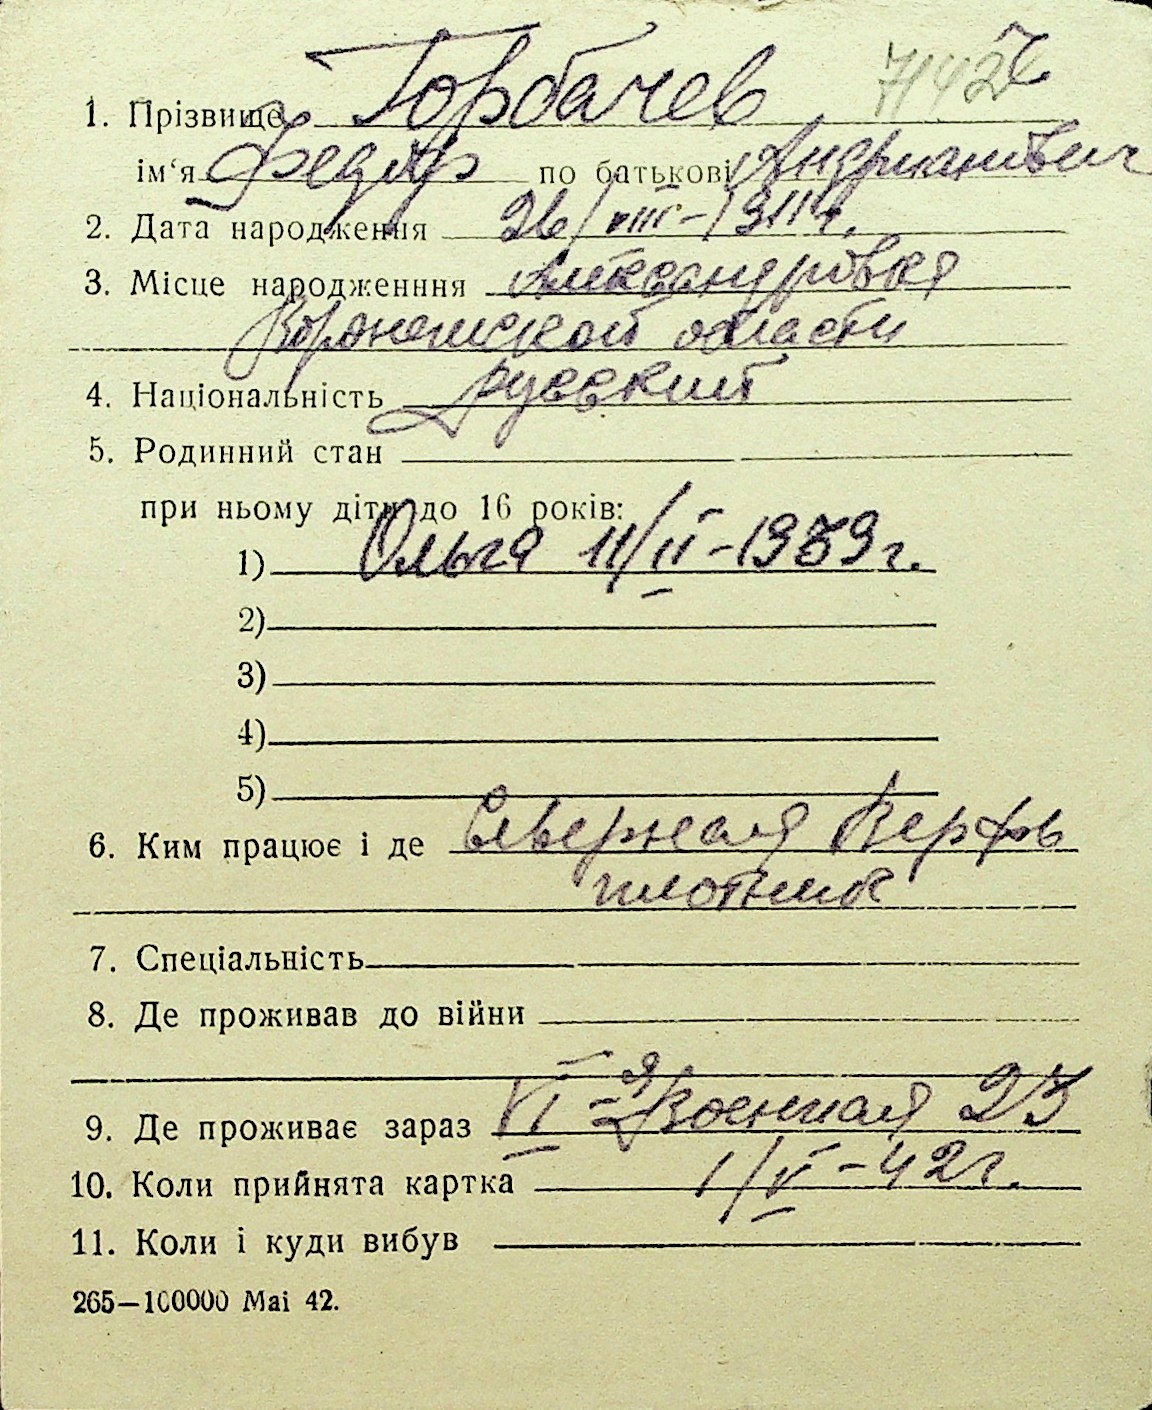 7142
1. Прізвище Горбачев
ім‘я Федор по батькові Андрианович
2. Дата народження 26/VIII-1911 г.
3. Місце народженння Александровка
Воронежской области
4. Національність русский
5. Родинний стан
при ньому діти до 16 років:
1) Ольга 11/II-1939 г.
2)
3)
4)
5)
6. Ким працює і де Северная Верфь
плотник
7. Спеціальність
8. Де проживав до війни
9. Де проживає зараз VI-я Военная 23
10. Коли прийнята картка 1/V-42 г.
11. Коли і куди вибув
265—100000 Mai 42.